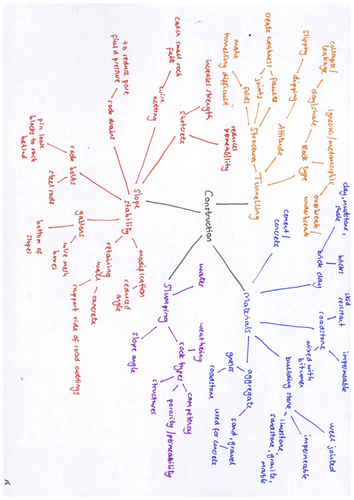 Construction
Tunnelling
Rock type
igneous/metamorphic
overbreak/
underbreak
clay/shale
collapse/
leakage
Attitude
dipping
slipping
Structure
faults
joints
create weakness
folds
make
tunnelling difficult
Materials
cement/
concrete
brick clay
clay, mudstone,
shale
bricks
roadstone
skid
resistant
impermeable
mixed with
bitumen
building stone
well jointed
impermeable
limestone,
sandstone, granite,
marble
aggregate
sand, gravel
used for concrete
roadstone
Slumping
water
weathering
rock types
competency
porosity/permeability
structures
slope angle
Slope
stability
modification
reduced
angle
retaining
wall - concrete
support side of road cuttings
gabions
wire mesh
boxes
bottom of
slopes
rock bolts
steel rods
pin loose
blocks to rock
behind
rock drains
to reduce pore
fluid pressure
wire
netting
catch small rock
falls
shotcrete
increases strength
reduces
permeability